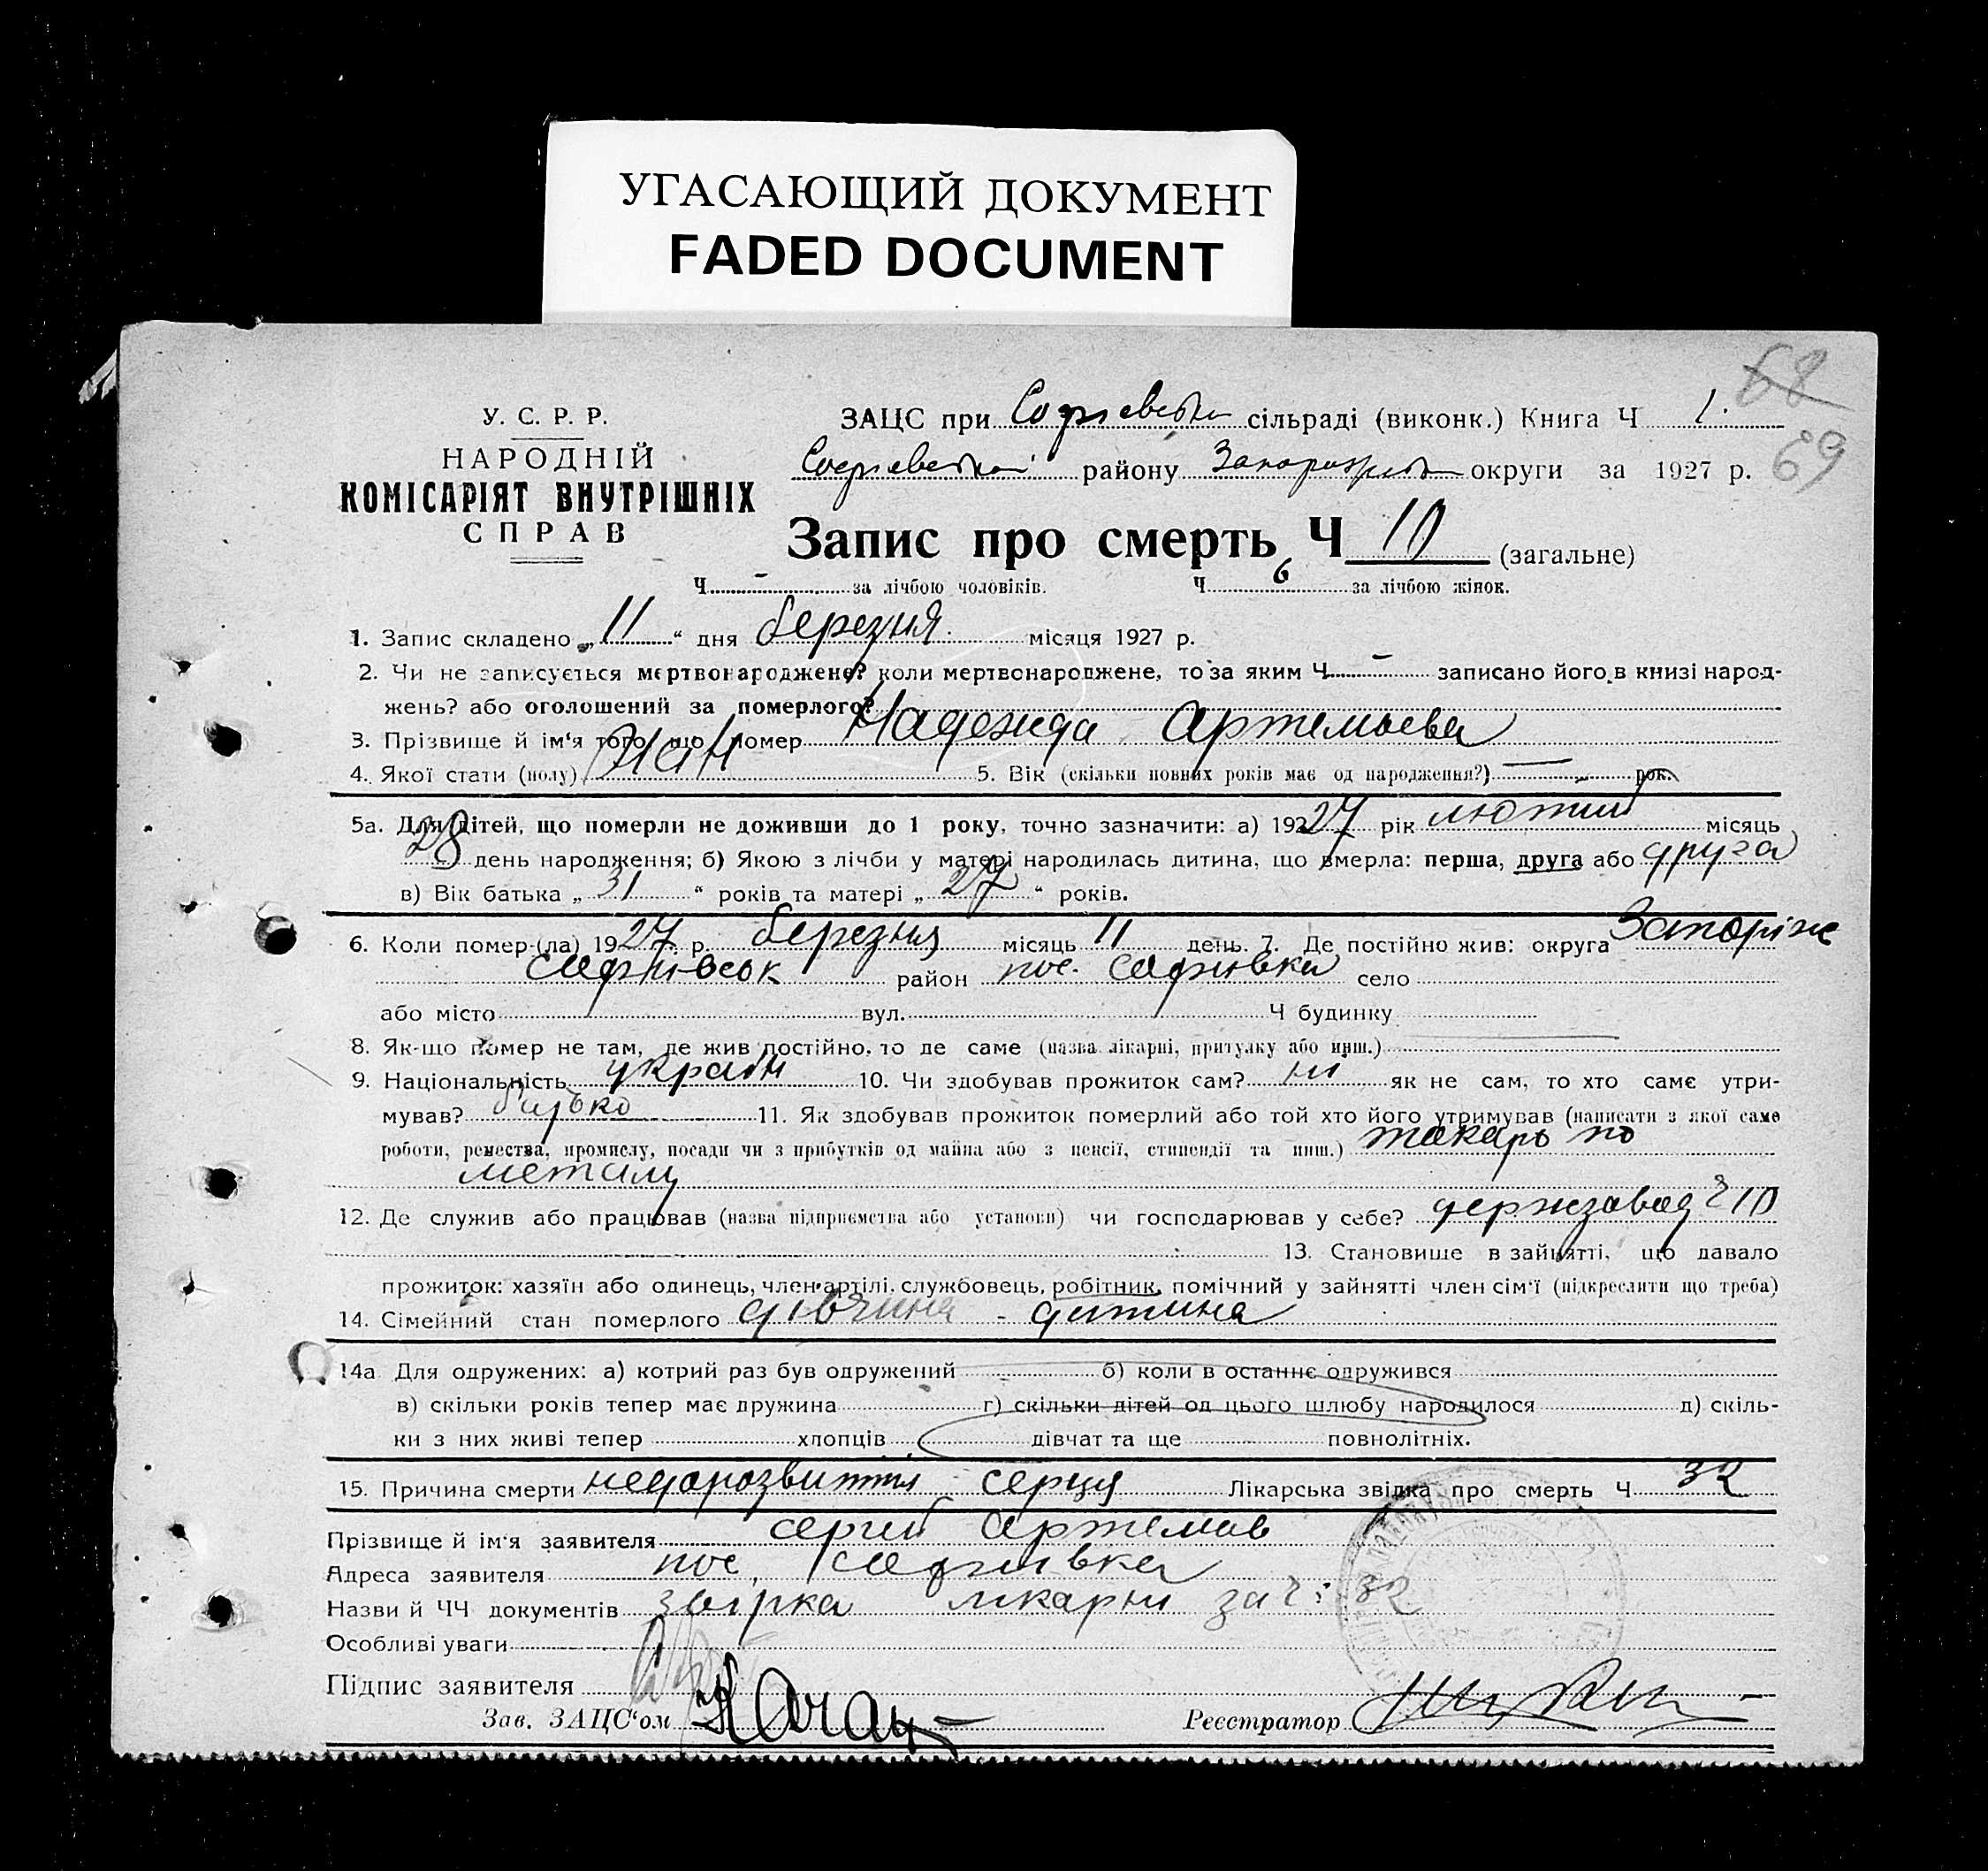 УГАСАЮЩИЙ ДОКУМЕНТ
FADED DOCUMENT
68
69
У. С. Р. Р.
НАРОДНІЙ
КОМІСАРІЯТ ВНУТРІШНІХ
СПРАВ
ЗАЦС при сільраді (виконк.) Книга Ч 1.
району округи за 1927 р.
Запис про смерть Ч 10 (загальне)
Ч - за лічбою чоловіків. Ч 6 за лічбою жінок.
1. Запис складено „ 11 “ дня березня місяця 1927 р.
2. Чи не записується мертвонароджене? коли мертвонароджене, то за яким Ч - записано його в книзі народ-
жень? або оголошений за померлого?
3. Прізвище й ім'я того, що помер Надежда Артемьева
4. Якої стати (полу) жін 5. Вік (скільки повних років має од народження?) — рок.
5а. Для дітей, що померли не доживши до 1 року, точно зазначити: а) 1927 рік лютий місяць
28 день народження; б) Якою з лічби у матері народилась дитина, що вмерла: перша, друга або друга
в) Вік батька „ 31 “ років та матері „ 27 “ років.
6. Коли помер-(ла) 1927 р. березня місяць 11 день. 7. Де постійно жив: округа Запоріж
Софиівськ район пос. Софиівка село
або місто вул. Ч будинку
8. Як-що помер не там, де жив постійно, то де саме (назва лікарні, притулку або инш.)
9. Національність україн 10. Чи здобував прожиток сам? ні як не сам, то хто саме утри-
мував? батько 11. Як здобував прожиток померлий або той хто його утримував (написати з якої саме
роботи, ремества, промислу, посади чи з прибутків од майна або з пенсії, стипендії та инш.) токарь по
металу
12. Де служив або працював (назва підприємства або установи) чи господарював у себе? держзавод Ч 10
13. Становище в зайнятті, що давало
прожиток: хазяїн або одинець, член артілі, службовець, робітник, помічний у зайнятті член сім'ї (підкреслити що треба)
14. Сімейний стан померлого дівчина - дитина
14а Для одружених: а) котрий раз був одружений б) коли в останнє одружився
в) скільки років тепер має дружина г) скільки дітей од цього шлюбу народилося д) скіль-
ки з них живі тепер хлопців дівчат та ще повнолітніх.
15. Причина смерти недорозвиття серця Лікарська звідка про смерть Ч 32
Прізвище й ім'я заявителя Сергий Артемов
Адреса заявителя пос. Софиівка
Назви й ЧЧ документів звірка лікарни за Ч 32
Особливі уваги
Підпис заявителя
Зав. ЗАЦС'ом Реєстратор